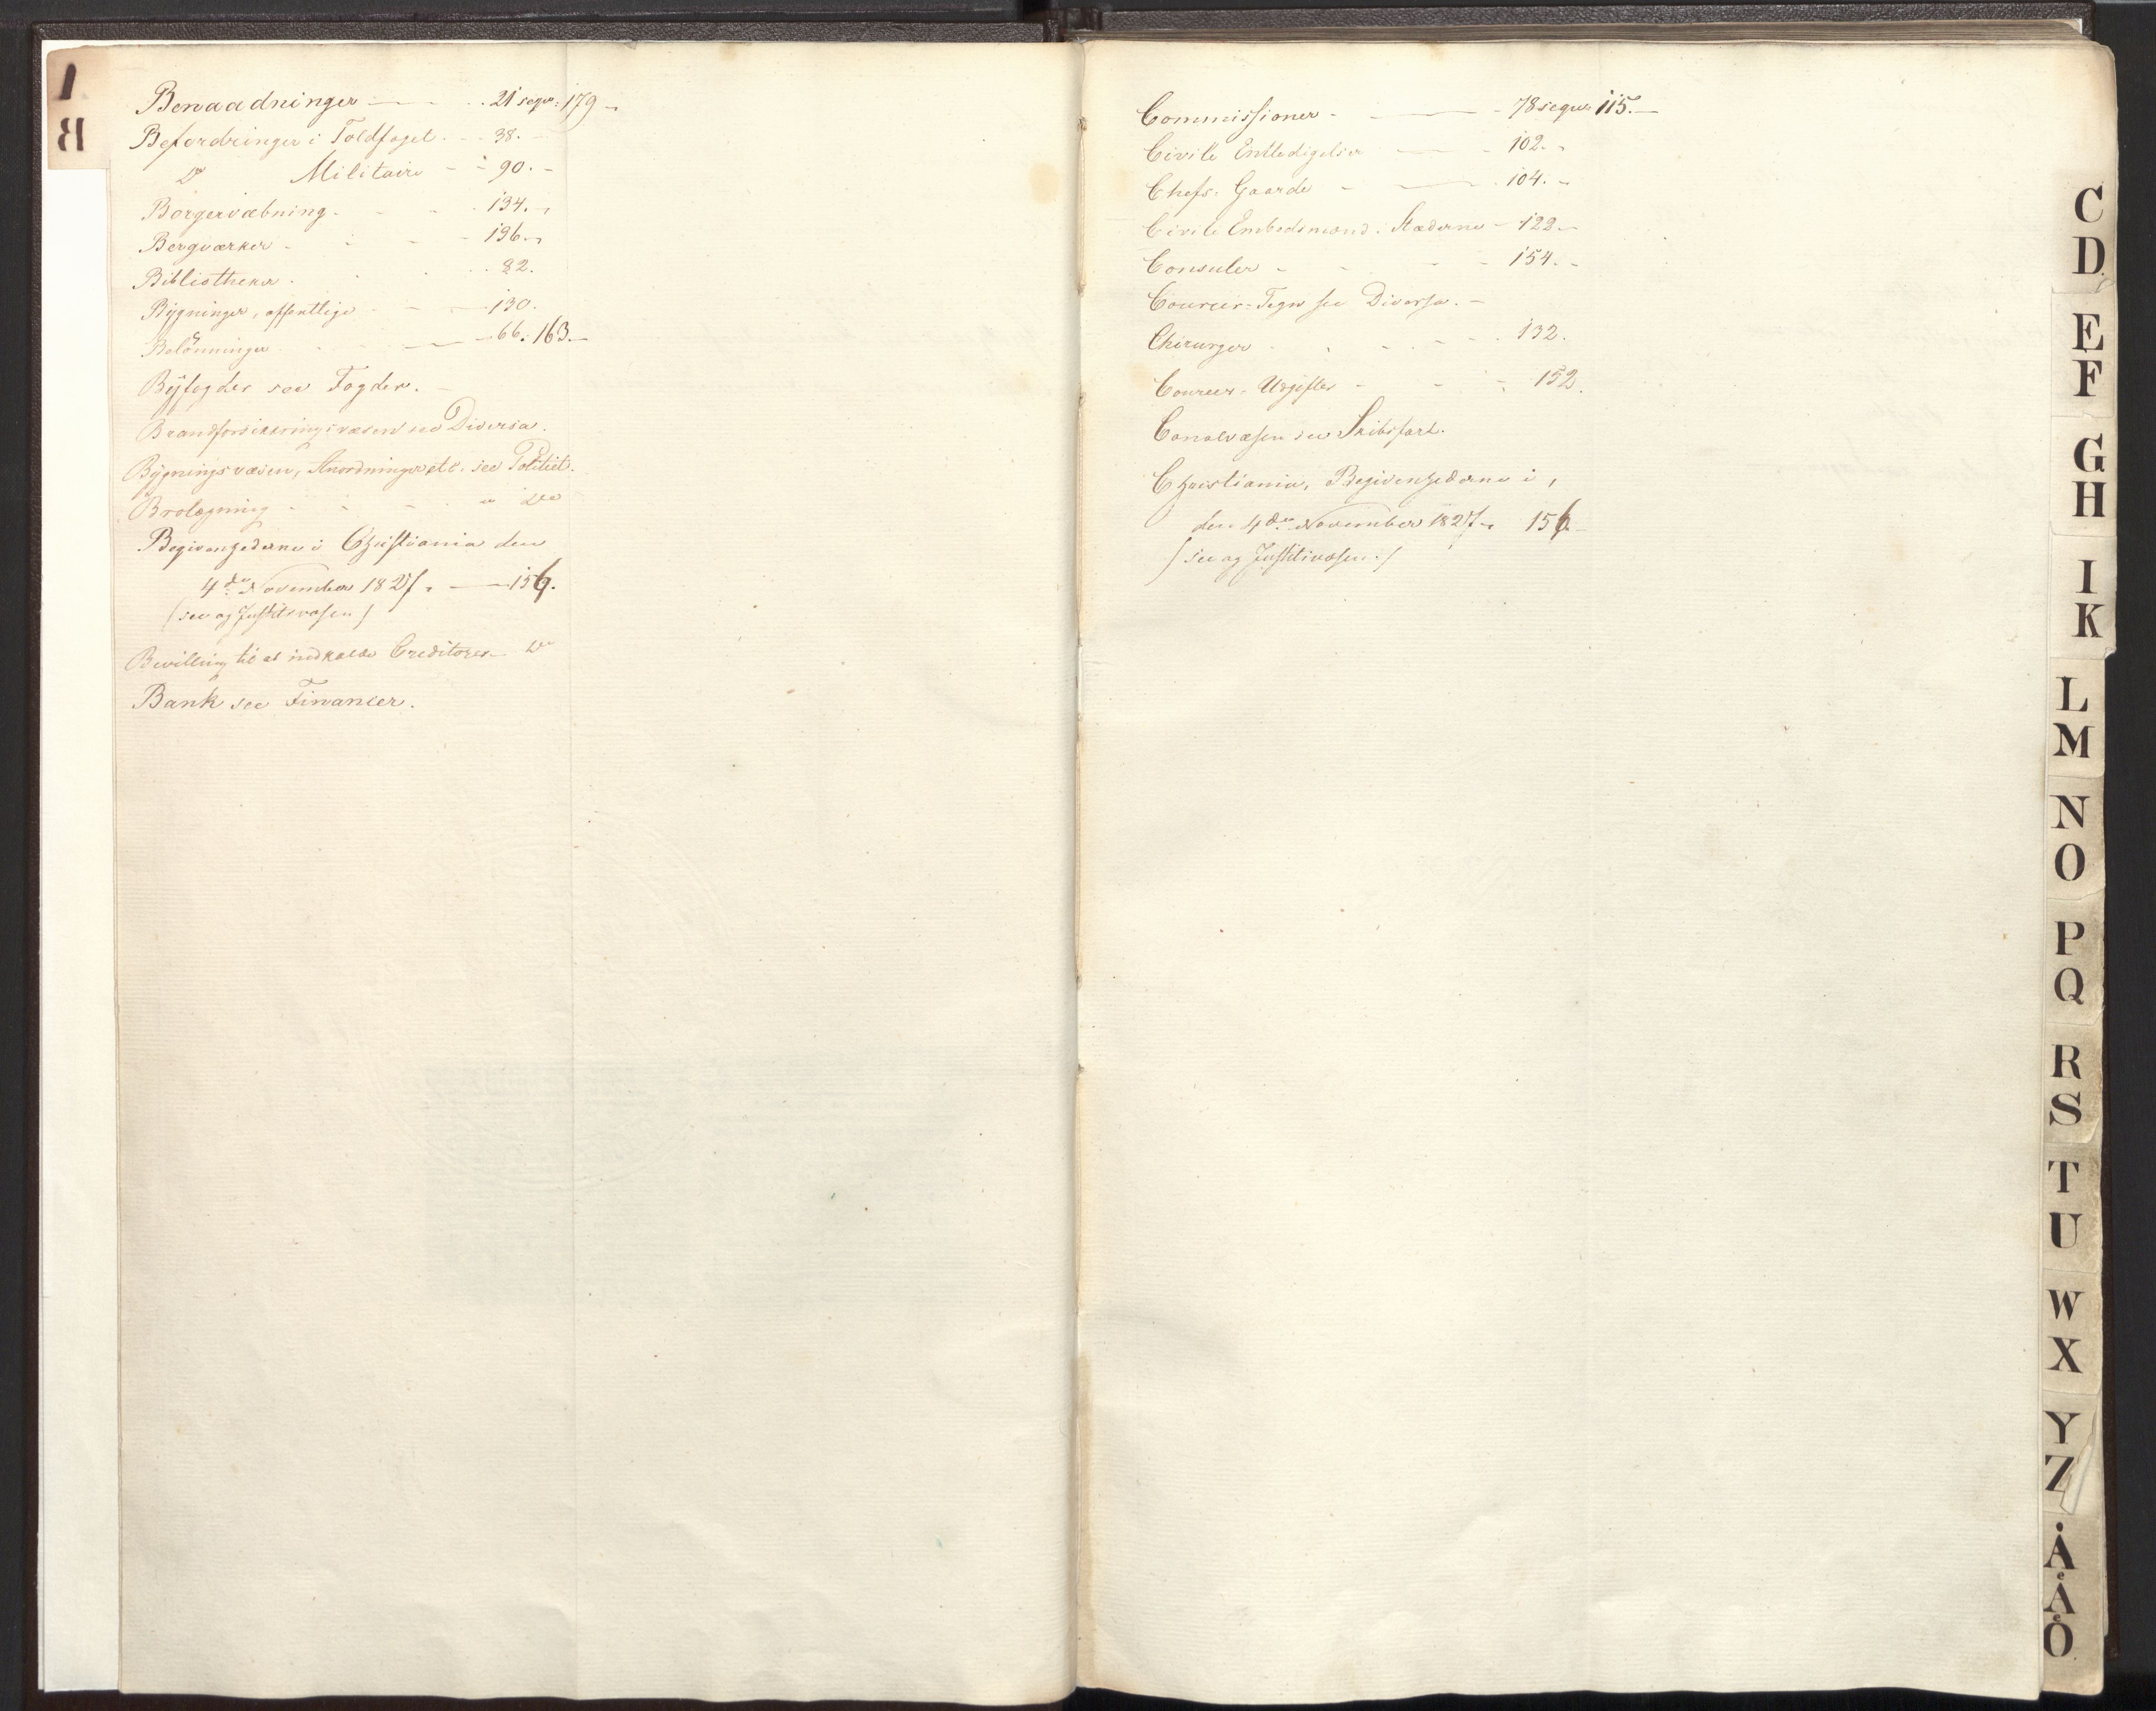 Benaadninger — . . 21 seqv: 179 –
Befordringer i Toldfaget . – 38. –
Do Militaire – – 90. –
Borgervæbning . – – . 134. –
Bergværker – – – – 136. –
Bibliotheker . . . . . 82.
Bygninger, offentlige . – – 130.
Belönninger – 66. 163. –
Byfogder see Fogder. –
Brandforsikkringsvæsen see Diversa.
Bygningsvæsen, Anordninger etc. see Politiet.
Brolægning – – – – do
Begivenhederne i Christiania den
4de November 1827 . — 156.
(see og Justitsvæsen)
Bevilling til at indkalde Creditorer – do
Bank see Financer.
Commissioner – — – 78 sequ: 115. –
Civile Entledigelser — – 102. –
Chefs-Gaarde – — . 104. –
Civile Embedsmænd . Stæderne – 122. –
Consuler – – – – 154. –
Coureer-Tegn see Diversa. –
Chirurger – . – . – – . 132.
Coureer-Udgifter – – – 152.
Canalvæsen see Skibsfart.
Christiania, Begivenhederne i,
den 4de November 1827 – 156. –
(see og Justitsvæsen.)
B
C
D
E
F
G
H
I
K
L
M
N
O
P
Q
R
S
T
U
W
X
Y
Z
Å
Aͤ
Oͤ